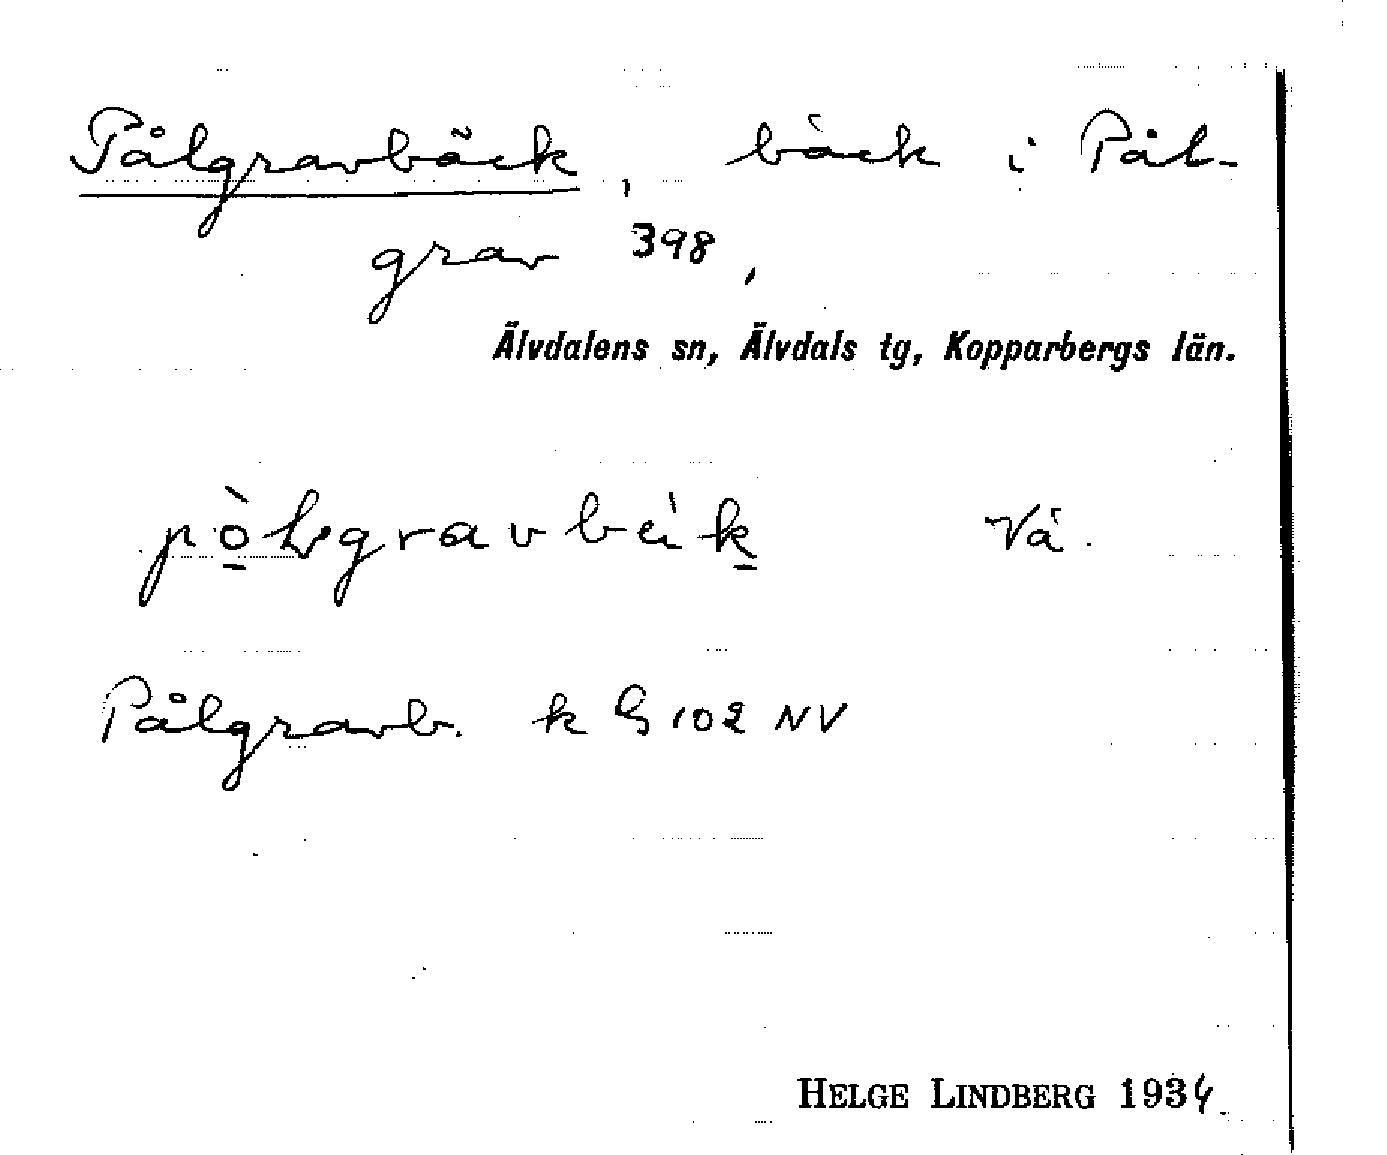 Pålgravbäck, bäck i Pål-
grav 398,
Älvdalens sn, Älvdals tg, Kopparbergs län.
Vå.
Pålgravb. k G 102 NV
HELGE LINDBERG 1934